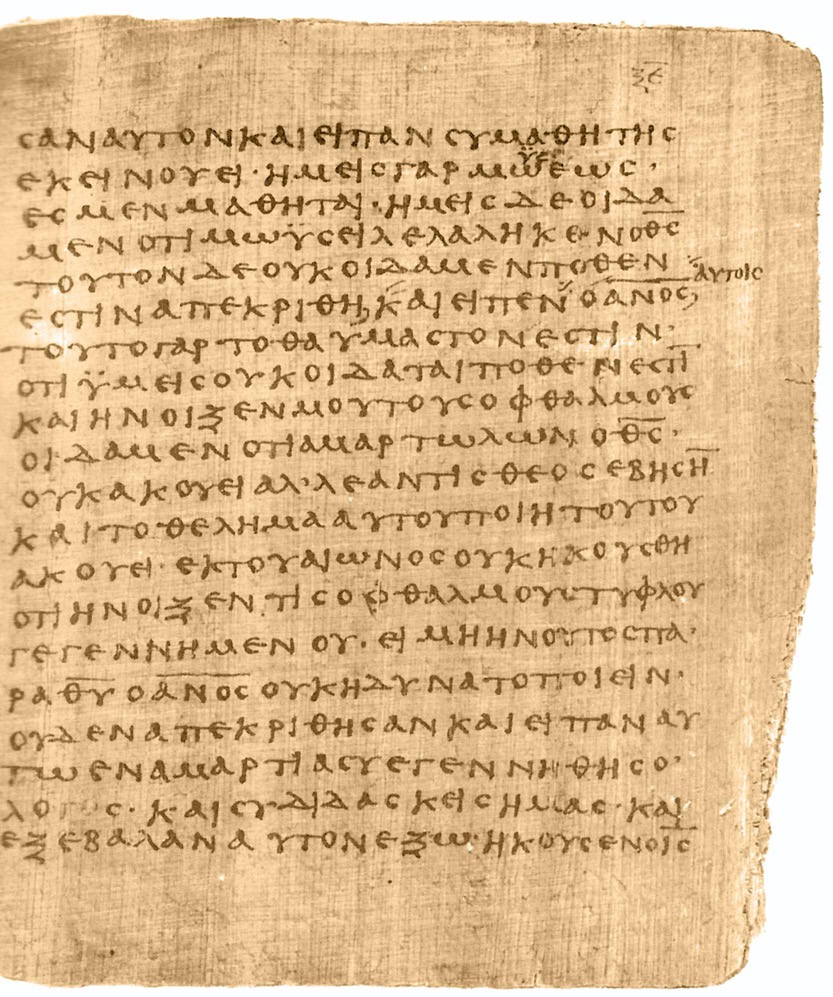 ξε
ϲαναυτονκαιειπανϲυμαθητηϲ
εκεινουει · ημειϲγαρμωϋϲεωϲ ·
εϲμενμαθηται · ημειϲδεοιδα
μενοτιμωϋϲειλελαληκενοθ̅ϲ̅
τουτονδεουκοιδαμενποθεν
εϲτιναπεκριθη καιειπεν οα̅ν̅ο̅ϲ̅ αυτοιϲ
τουτογαρτοθαυμαϲτονεϲτιν ·
οτιϋμειϲουκοιδαταιποθενεϲτι̅
καιηνοιξενμουτουϲοφθαλμουϲ
οιδαμενοτιαμαρτωλωνοθ̅ϲ̅ ·
ουκακουειαλ᾽λεαντιϲθεοϲεβηϲη̅
καιτοθελημααυτουποιητουτου
ακουει · εκτουαιωνοϲουκηκουϲθη
οτιηνοιξεντιϲοφθαλμουϲτυφλου
γεγεννημενου · ειμηηνουτοϲπα ·
ραθ̅υ̅οα̅ν̅ο̅ϲ̅ουκηδυνατοποιειν ·
ουδεναπεκριθηϲανκαιειπαναυ
τωεναμαρτιαϲυεγεννηθηϲο ·
λογοϲ · καιϲυδιδαϲκειϲημαϲ · και
εξεβαλαναυτονεξω · ηκουϲενοι̅ϲ̅